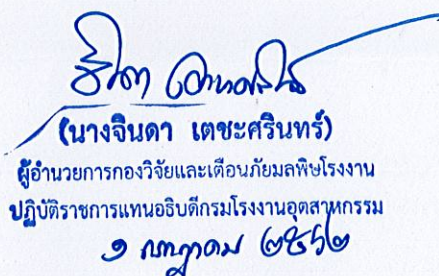 จินดา เตชะศรินทร์
(นางจินดา เตชะศรินทร์)
ผู้อำนวยการกองวิจัยและเตือนภัยมลพิษโรงงาน
ปฏิบัติราชการแทนอธิบดีกรมโรงงานอุตสาหกรรม
๑ กรกฎาคม ๒๕๖๒